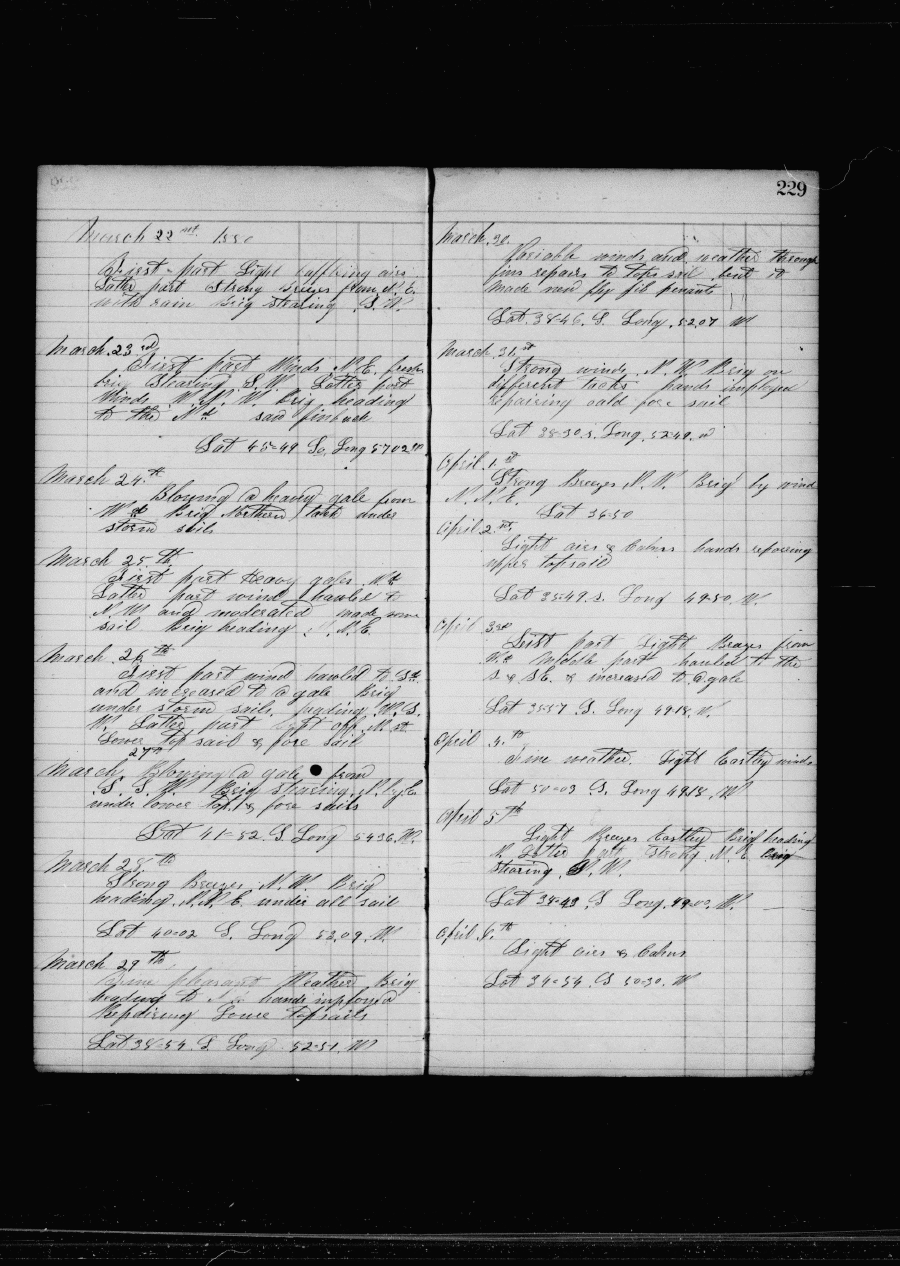 March 22nd 1880
First part Light baffling airs
Latter part strong breezes from N. E.
with rain Brig stearing S. W.
March 23rd
First part Winds N. E. fresh
brig Stearing S. W. Latter part
Winds W. N. W. brig heading
to the Nd saw finback
Lat 45=49 So. Long 5702 W
March 24th
Blowing a heavy gale from
Wd Brig Northern tack under
storm sails
March 25th
First part Heavy gales
Latter part wind hauled to
N. W. and moderated made some
sail Brig heading N. N. E.
March 26th
First part wind hawled to Sd
and increased to a gale Brig
under storm sails heading W. S.
W. Latter part kept off N. st
Lower top sail & fore sail
March 27th Blowing a gale from
S. S. W. Brig stearing N. by E.
under lower top. & fore sails
Lat 41=52. S. Long 5436. W.
March 28th
Strong Breezes N. W. Brig
heading N. N. E. under all sail
Lat 40=02 S. Long 52.09. W.
March 29th
Fine pleasant Weather Brig
heading to hands imployed
Repairing Lower topsails
Lat 38=54 S Long 52=51. W
229
March 30.
Variable winds and weather through
fins repairs to tops sail bent it
made new fly jib penants
Lat. 38=46. S. Long. 52.07 W
March 31st
Strong winds N. W. Brig on
different tacks hands imployed
repairing oald fore sail
Lat 38=30. s. Long. 52=49. w
April 1.st
Strong Breezes N. W. Brig by wind
N. N. E.
Lat 36=50
April 2.nd
Light airs & Calms hands repairing
upper topsail
Lat 35=49. s. Long 49=50. W.
April 3rd
First part Light Breezes from
Middle part hauled to the
S & SE. & increased to a gale
Lat 3557 S. Long 49.18. W.
April 4.th
Fine weather. Light Eastley winds
Lat 50=03 S. Long 4918. W
April 5th
Light Breezes Eastley Brig heading
N. Latter part strong N. E. Brig
stearing, N. W.
Lat 34=43. S Long. 49=00. W.
April 6.th
Light airs & Calms
Lat 34=54. S 50=30. W